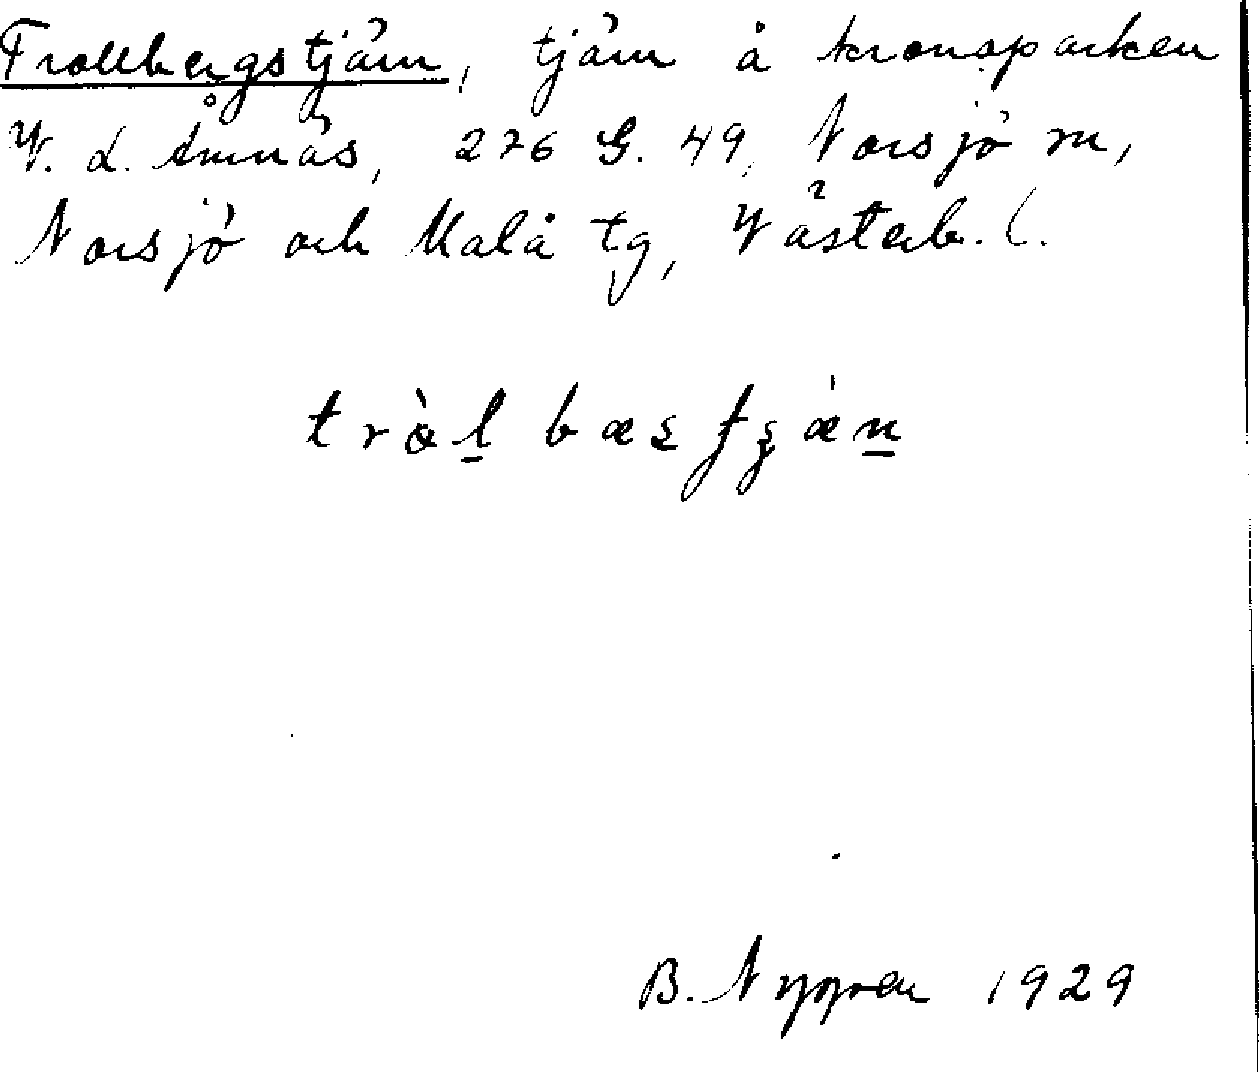 Trollbergstjärn, tjärn å kronoparken
V. L. Åmnäs, 276 G. 49, Norsjö sn,
Norsjö och Malå tg, Västerb. l.
tròl bæs tʒæn
B. Nygren 1929